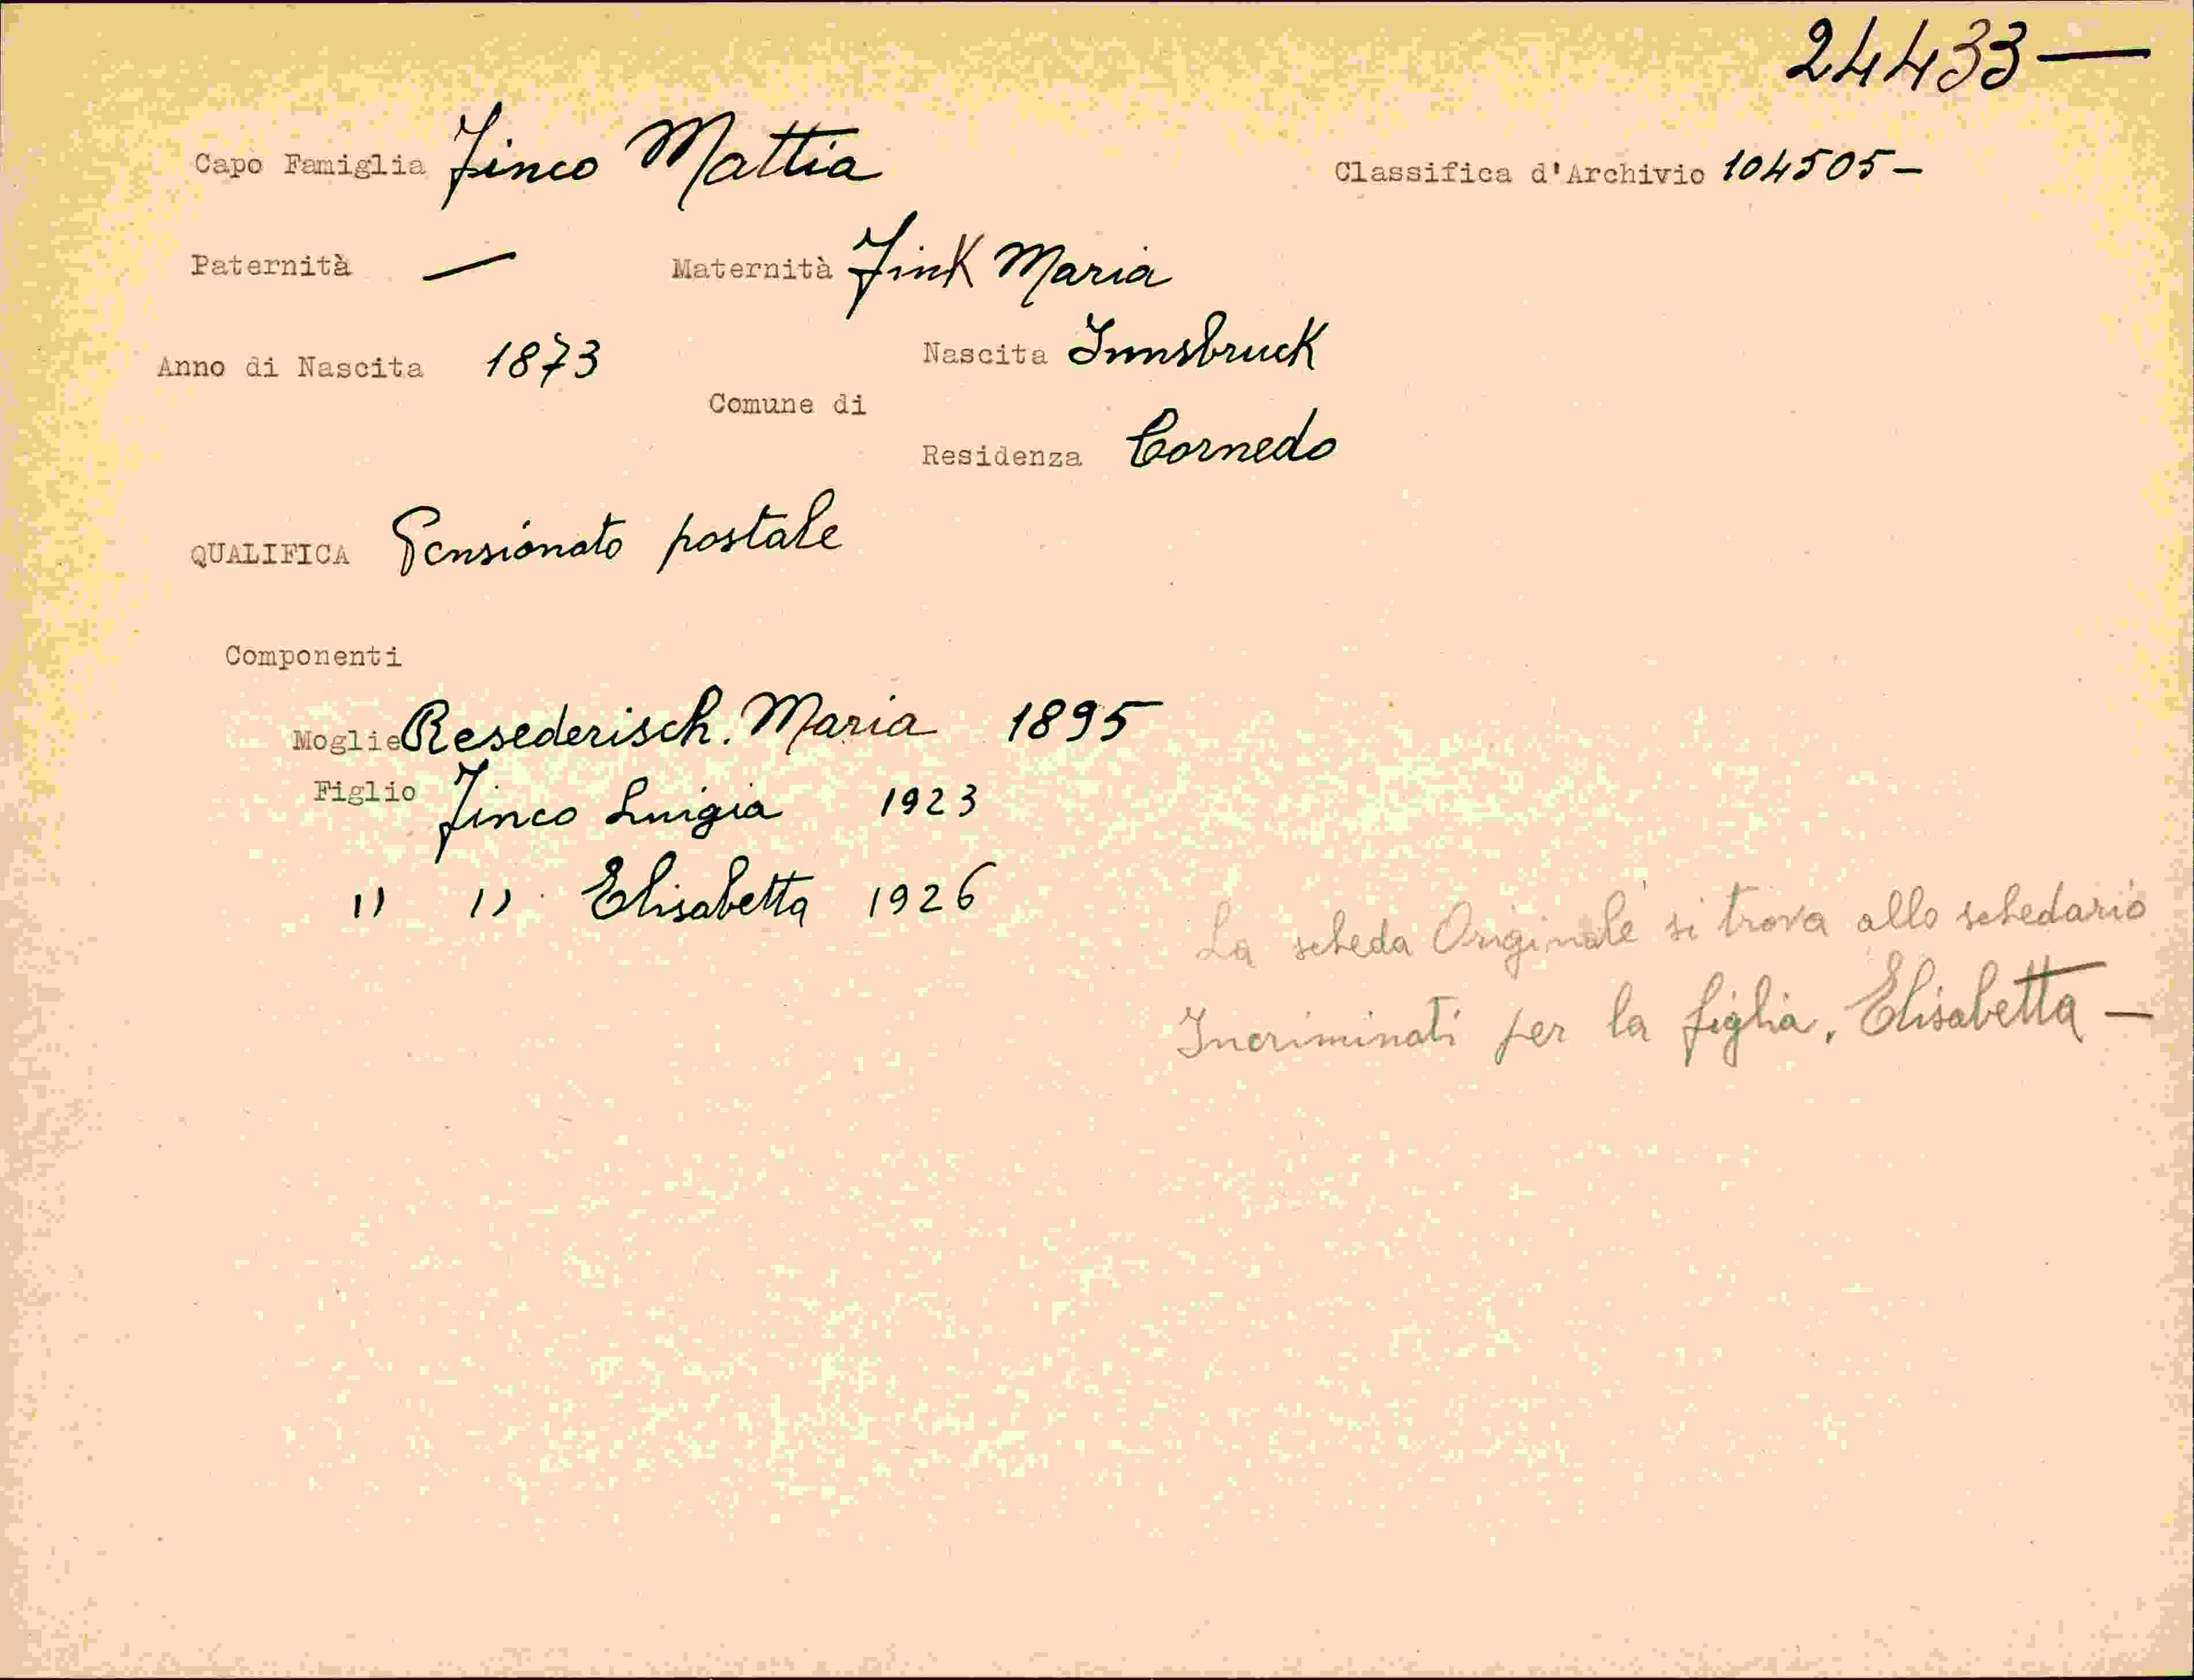 24433—
Capo Famiglia Finco Mattia
Classifica d'Archivio 104505–
Paternità — Maternità Fink Maria
Anno di Nascita 1873
Comune di
Nascita Innsbruck
Residenza Cornedo
QUALIFICA Pensionato postale
Componenti
Moglie Resederisch. Maria 1895
Figlio Finco Luigia 1923
" " Elisabetta 1926
La scheda Originale si trova allo schedario
Incriminati per la figlia. Elisabetta —